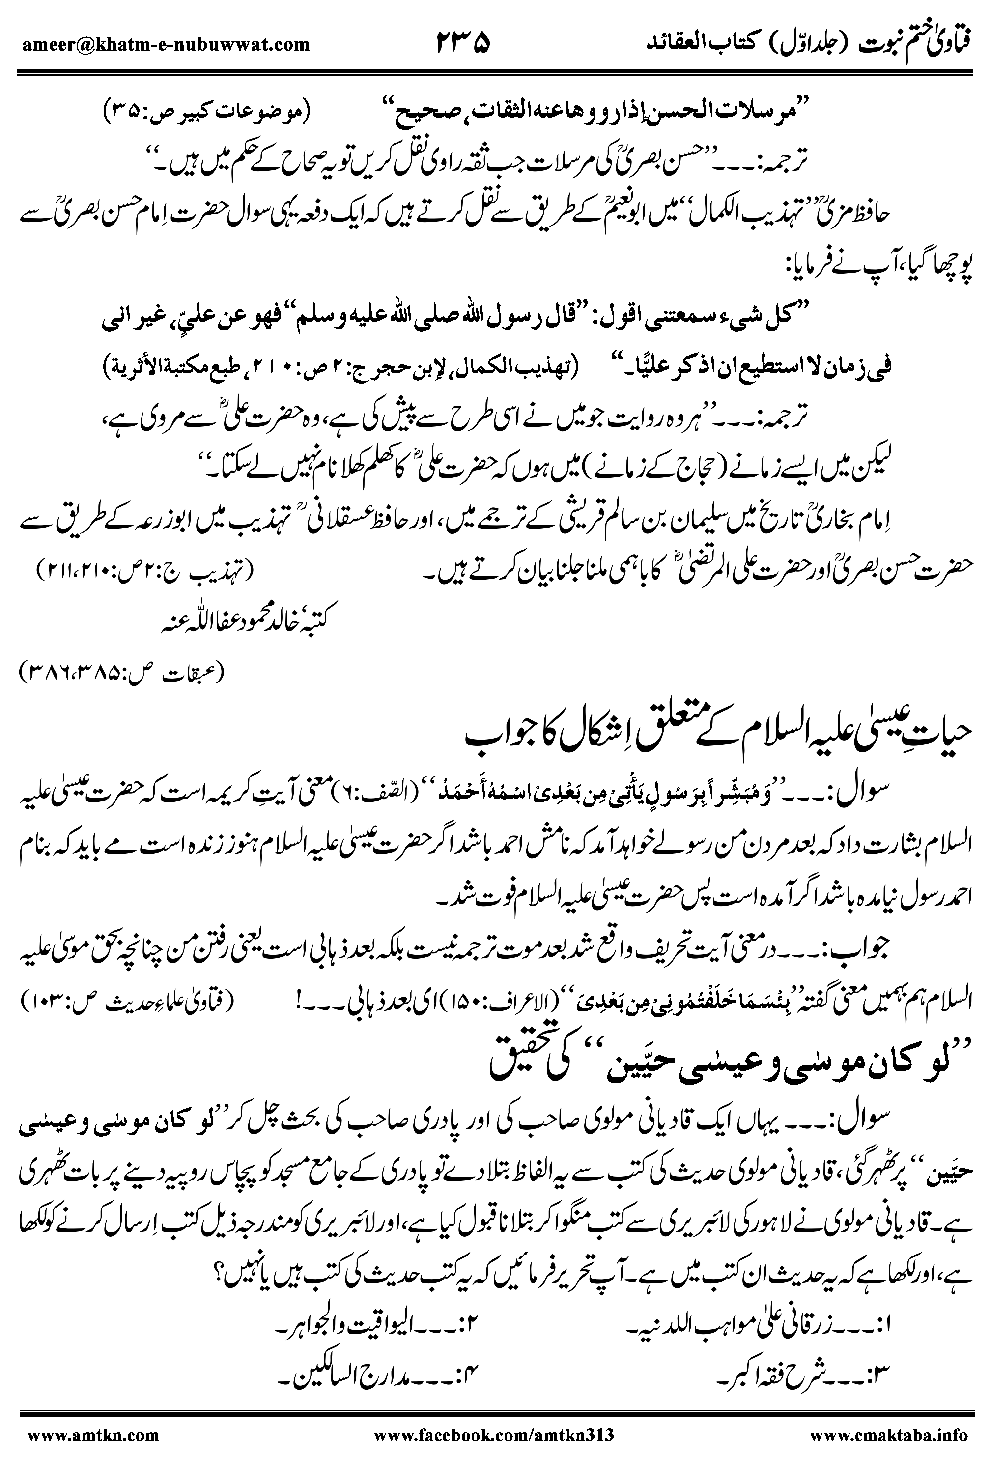 فتاویٰ ختم نبوت (جلد اوّل) کتاب العقائد ۲۳۵ ameer@khatm-e-nubuwwat.com
”مرسلات الحسن إذا رووها عنه الثقات، صحیح“ (موضوعات کبیر ص:۳۵)
ترجمہ:۔۔۔”حسن بصریؒ کی مرسلات جب ثقہ راوی نقل کریں تو یہ صحاح کے حکم میں ہیں۔“
حافظ مزیؒ ”تہذیب الکمال“ میں ابونعیمؒ کے طریق سے نقل کرتے ہیں کہ ایک دفعہ یہی سوال حضرت اِمام حسن بصریؒ سے
پوچھا گیا، آپ نے فرمایا:
”کل شیء سمعتنی اقول: ”قال رسول الله صلی الله علیہ وسلم“ فھو عن علیٍّ، غیر انی
فی زمان لا استطیع ان اذکر علیًّا۔“ (تھذیب الکمال، لإبن حجر ج:۲ ص:۲۱۰، طبع مکتبة الأثریة)
ترجمہ:۔۔۔”ہر وہ روایت جو میں نے اسی طرح سے پیش کی ہے، وہ حضرت علیؓ سے مروی ہے،
لیکن میں ایسے زمانے (حجاج کے زمانے) میں ہوں کہ حضرت علیؓ کا کھلم کھلا نام نہیں لے سکتا۔“
اِمام بخاریؒ تاریخ میں سلیمان بن سالم قریشی کے ترجمے میں، اور حافظ عسقلانیؒ تہذیب میں ابوزرعہ کے طریق سے
حضرت حسن بصریؒ اور حضرت علی المرتضیٰؓ کا باہمی ملنا جلنا بیان کرتے ہیں۔ (تہذیب ج:۲ ص:۲۱۰،۲۱۱)
کتبہٗ خالد محمود عفا اللہ عنہ
(عبقات ص:۳۸۵،۳۸۶)
حیاتِ عیسیٰ علیہ السلام کے متعلق اِشکال کا جواب
سوال:۔۔۔”وَمُبَشِّراً بِرَسُولٍ يَأْتِیْ مِن بَعْدِیْ اسْمُهُ أَحْمَدُ“ (الصّف:۶) معنی آیتِ کریمہ است کہ حضرت عیسیٰ علیہ
السلام بشارت داد کہ بعد مردن من رسولے خواہد آمد کہ نامش احمد باشد اگر حضرت عیسیٰ علیہ السلام ہنوز زندہ است مے باید کہ بنام
احمد رسول نیامدہ باشد اگر آمدہ است پس حضرت عیسیٰ علیہ السلام فوت شد۔
جواب:۔۔۔در معنی آیت تحریف واقع شد بعد موت ترجمہ نیست بلکہ بعد ذہابی است یعنی رفتن من چنانچہ بحق موسیٰ علیہ
السلام ہم ہمیں معنی گفتہ ”بِئْسَمَا خَلَفْتُمُونِیْ مِن بَعْدِیَ“ (الاعراف:۱۵۰) ای بعد ذہابی۔۔۔! (فتاویٰ علماء حدیث ص:۱۰۳)
”لو کان موسٰی وعیسٰی حیَّین“ کی تحقیق
سوال:۔۔۔ یہاں ایک قادیانی مولوی صاحب کی اور پادری صاحب کی بحث چل کر ”لو کان موسٰی وعیسٰی
حیَّین“ پر ٹھہر گئی، قادیانی مولوی حدیث کی کتب سے یہ الفاظ بتلا دے تو پادری کے جامع مسجد کو پچاس روپیہ دینے پر بات ٹھہری
ہے۔ قادیانی مولوی نے لاہور کی لائبریری سے کتب منگوا کر بتلانا قبول کیا ہے، اور لائبریری کو مندرجہ ذیل کتب اِرسال کرنے کو لکھا
ہے، اور لکھا ہے کہ یہ حدیث ان کتب میں ہے۔ آپ تحریر فرمائیں کہ یہ کتب حدیث کی کتب ہیں یا نہیں؟
۱:۔۔۔زرقانی علیٰ مواہب اللدنیہ۔ ۲:۔۔۔الیواقیت والجواہر۔
۳:۔۔۔شرح فقہ اکبر۔ ۴:۔۔۔مدارج السالکین۔
www.amtkn.com www.facebook.com/amtkn313 www.cmaktaba.info